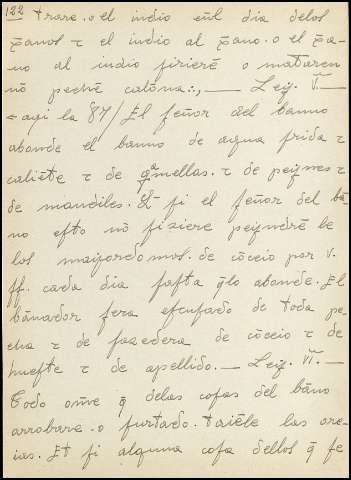 122 trare. o el iudio eñl dia delos
χanos τ el iudio al χano. o el χa-
no al iudio firierē o mataren
nō peche calōna:., — Ley. V.—
< aqi la 87/ El señor del banno
abonde el banno de agua frida τ
caliēte τ de gamellas. τ de peignes τ
de mandiles. Et si el señor del bā-
no esto nō fiziere peyndrē le
los mayordomos. de cōceio por v.
ss. cada dia fasta q̄lo abonde. El
bānador sera escusado de toda pe
cha τ de fazedera de cōceio τ de
huefte τ de apellido. — Ley. VI. —
Todo om̄e q̄ delas cosas del bāno
arrobare. o furtado. taiēle las ore-
ias. Et si alguna cosa dellos q̄ se